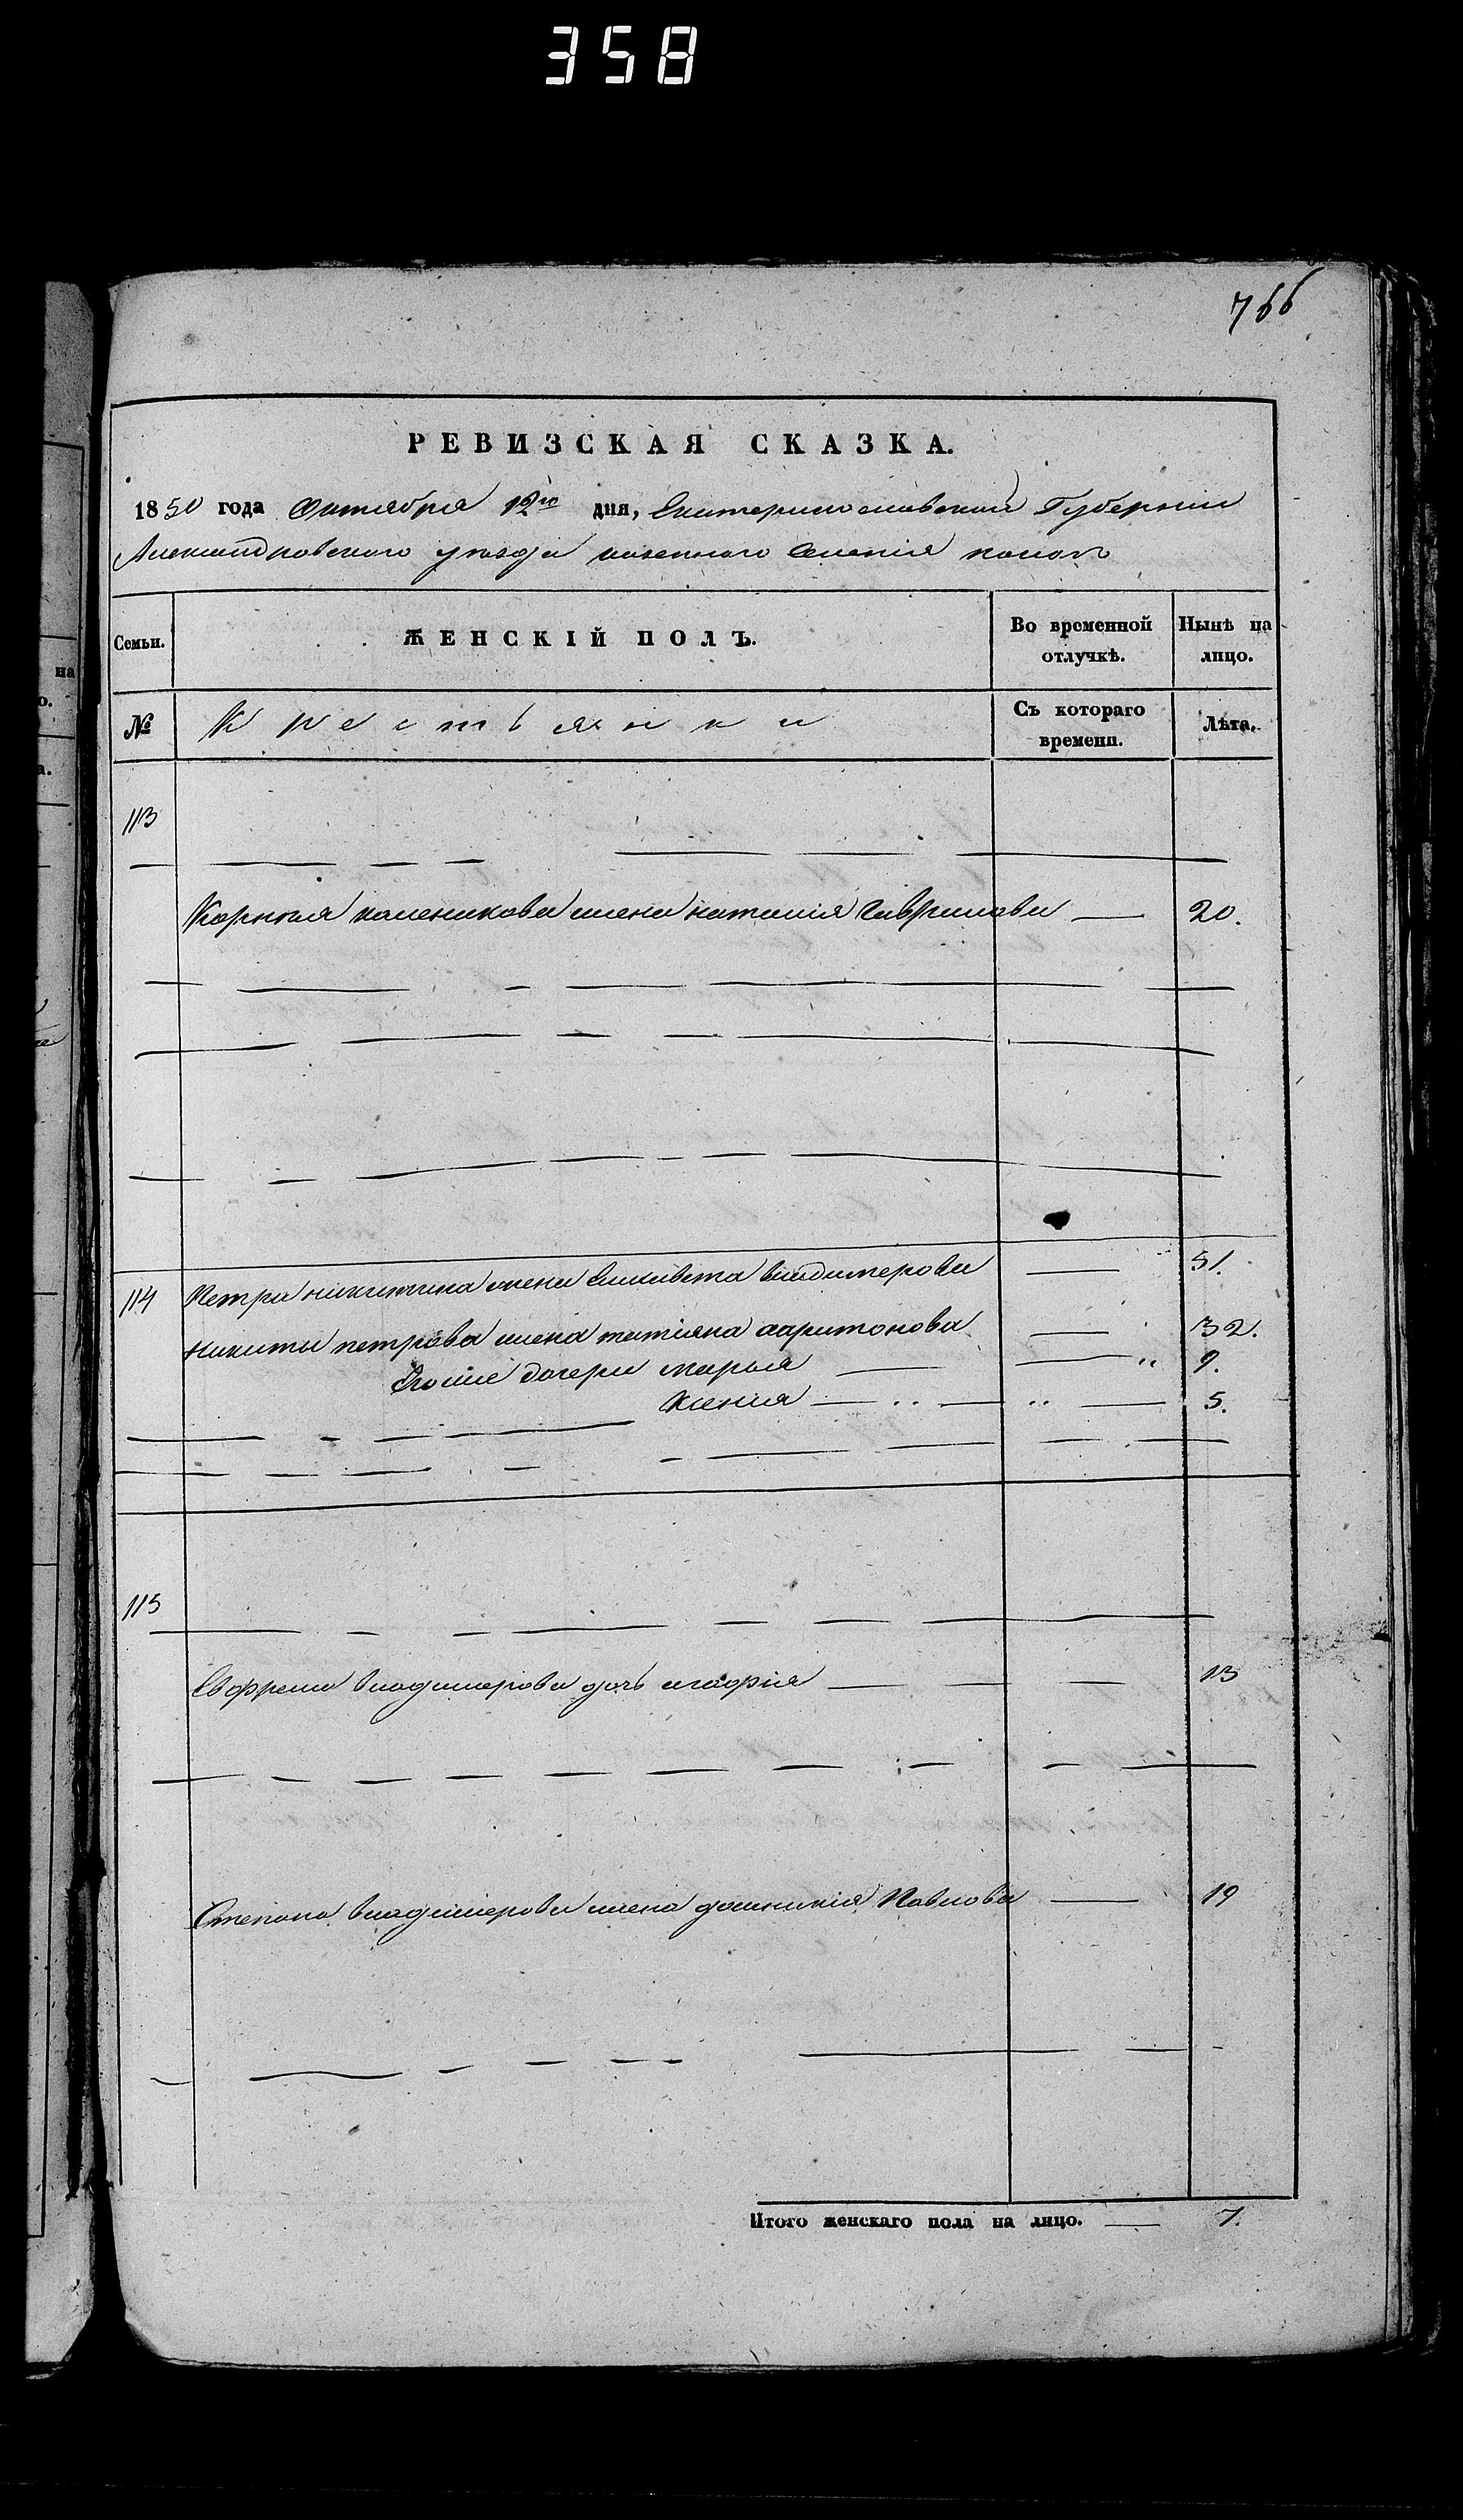 358
766
РЕВИЗСКАЯ СКАЗКА.
1850 года Октября 12го дня, Екатеринославской Губернии
Александровского уезда казенного Селения
Семьи.
ЖЕНСКІЙ ПОЛЪ.
Во временной отлучкѣ.
Нынѣ на лицо.
№
Крестьянки
Съ котораго времени.
Лѣта.
113
Корнея жена наталия Гаврилова — 20.
114 Петра никитина жена Елисавета владимерова — 51.
Никиты петрова жена татияна харитонова — 32.
Его же дочери марья — 9.
Ксения — 5.
115
Евфрема владимерова дочь агафия — 13
Степана владимерова жена домникия Павлова — 19
Итого женскаго пола на лицо. — 7.
на
о.
а.